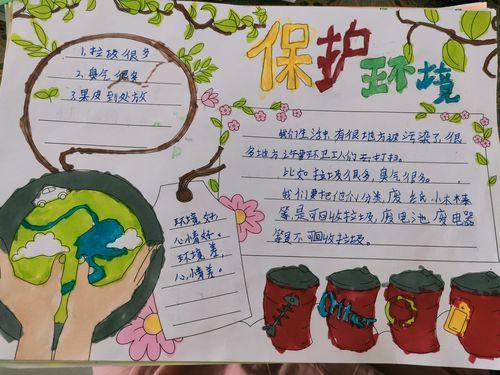 保护环境
1.垃圾很多
2.臭气很多
3.果皮到处放
我们生活中有很地方被污染了,很
多地方还要环卫工人的去打扫。
比如垃圾很多,臭气很多。
我们要把他们分类,废纸,小木棒
等是可回收垃圾,废电池,废电器
等是不可回收垃圾。
环境好,
心情好。
环境差,
心情差。